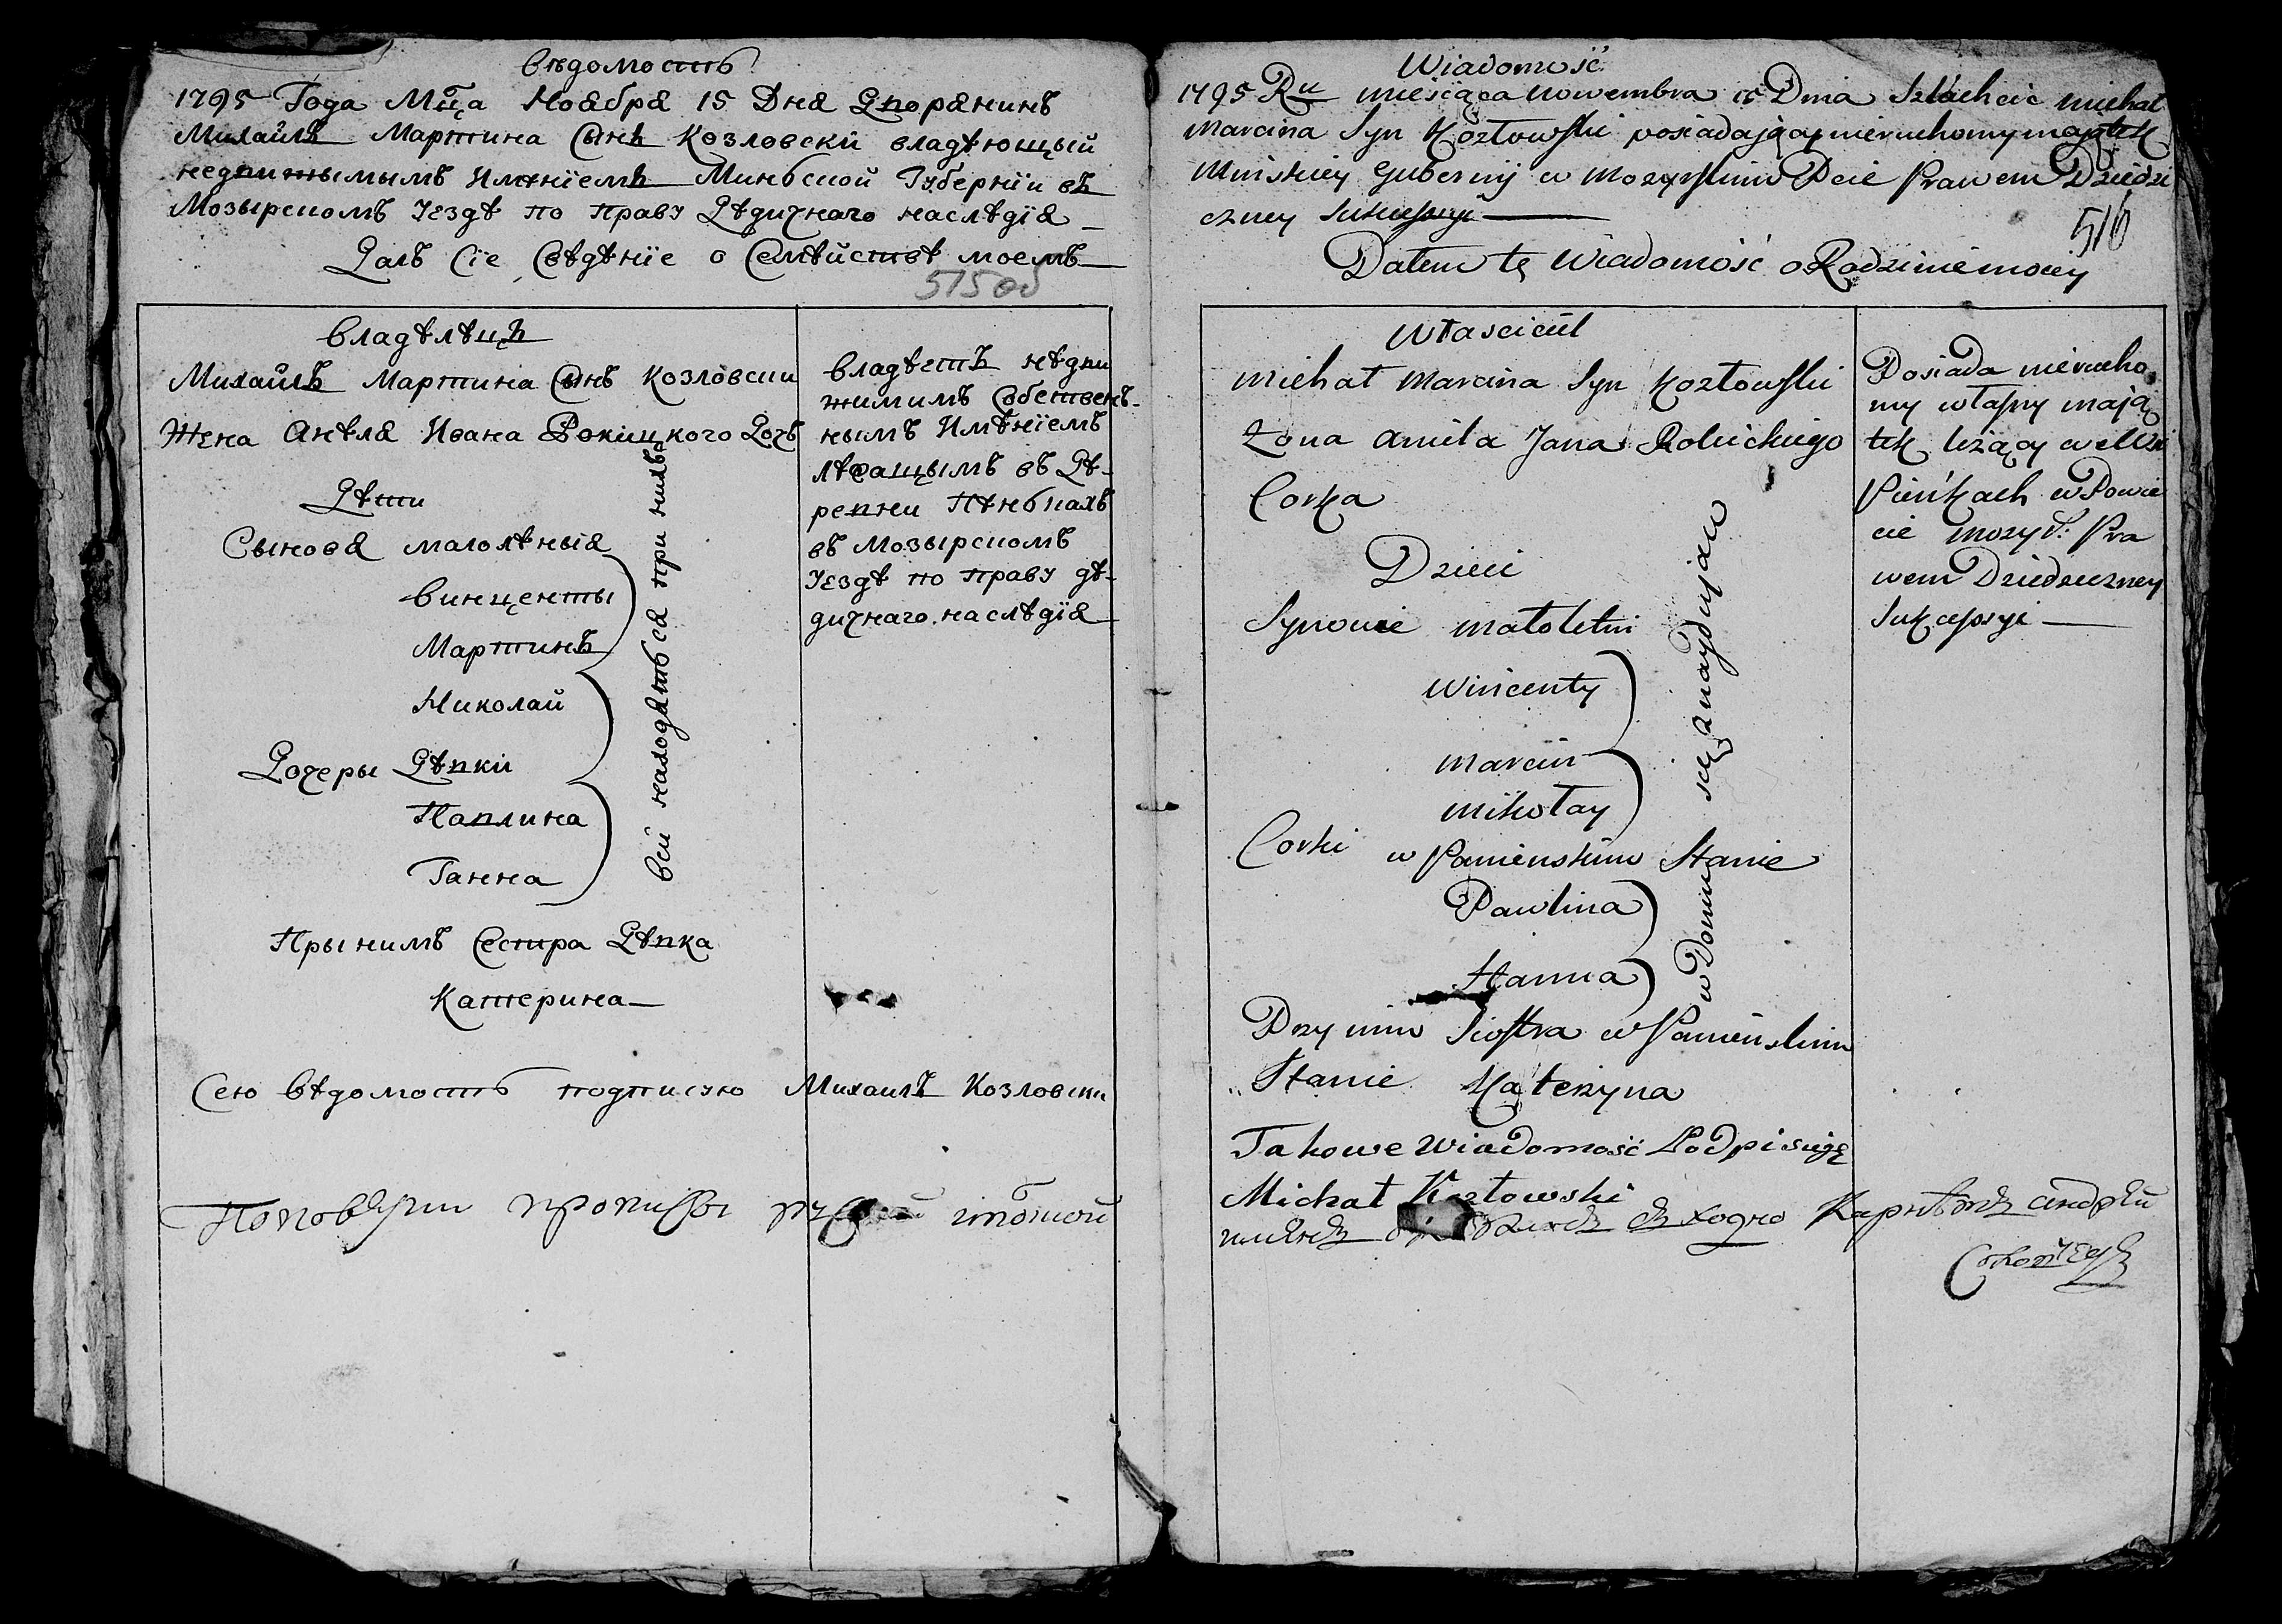 Вѣдомость
1795 Года Мца Ноября 15 Дня Дворянинъ
Михаилъ Мартина Сынъ Козловски владѣющый
недвижымымъ Имѣнїемъ Минской Губернїи въ
Мозырскомъ Уездѣ по праву Дѣдичнаго наслѣдїя
Далъ Сїе Свѣдѣнїе о Семѣйствѣ моемъ
515 об
Владѣлѣцъ
Михаилъ Мартина Сынъ Козловски
Жена Анѣля Ивана Рокицкого Дочъ
Дѣти
Сыновя малолѣныя
Винценты
Мартинъ
Николай
Дочеры Дѣвки
Павлина
Ганна
Всѣ находятся при нихъ
Прынимъ Сестра Дѣвка
Катерина
Владѣетъ нѣдви
жимимъ Собственъ-
нымъ Имѣнїемъ
лѣжащымъ въ Дѣ-
ревни Пѣнькахъ
въ Мозырскомъ
Уездѣ по праву дѣ-
дичнаго наслѣдїя
Сею Вѣдомость подписую Михаилъ Козловски
Wiadomość
1795 Ru miesiąca Nowembra 15 Dnia Szlachcic Michał
Marcina Syn Kozłowski posiadający nieruchomy majątek
Minskiey Gubernij w Mozyrskim Pcie Prawem Dziedzi
czney Sukcessyi
516
Dałem tę Wiadomość o Rodzinie moiey
Własciciel
Michał Marcina Syn Kozłowski
Żona Aniela Jana Rokickiego
Corka
Dzieci
Synowie małoletni
Wincenty
Marcin
Mikołay
Corki w Panieńskim Stanie
Pawlina
Hanna
w Domu się znaydujao
Przy nim Siostra w Panieńskim
Stanie Katerzyna
Posiada nierucho
my własny mają
tek leżący we Wsi
Pieńkach w Powie
cie Mozyr: Pra
wem Dziedziczney
Sukcessyi
Takowe Wiadomość Podpisuję
Michał Kozłowski